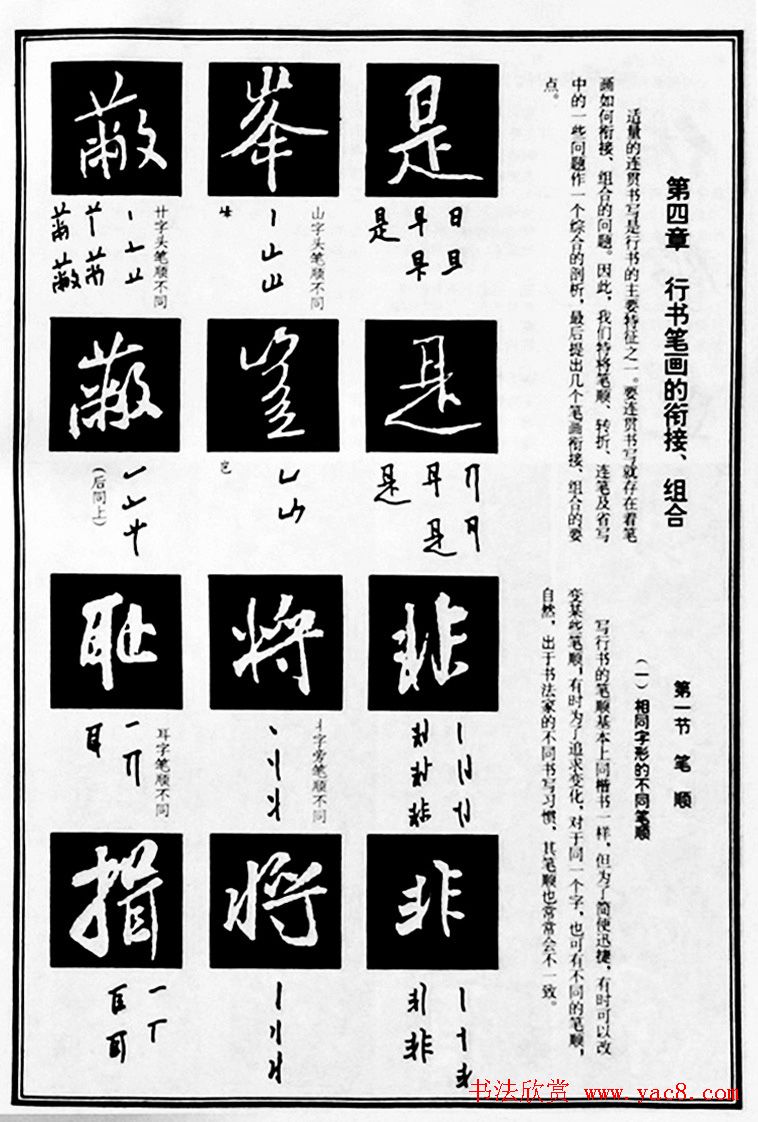 第四章 行书笔画的衔接、组合
适量的连贯书写是行书的主要特征之一。要连贯书写就存在着笔
画如何衔接、组合的问题。因此，我们特将笔顺、转折、连笔及省写
中的一些问题作一个综合的剖析，最后提出几个笔画衔接、组合的要
点。
第一节 笔 顺
(一) 相同字形的不同笔顺
写行书的笔顺基本上同楷书一样，但为了简便迅捷，有时可以改
变某些笔顺，有时为了追求变化，对于同一个字，也可有不同的笔顺，
自然，出于书法家的不同书写习惯，其笔顺也常常会不一致。
是
是
非
非
峯
山字头笔顺不同
将
丬字旁笔顺不同
将
蔽
廿字头笔顺不同
蔽
(后同上)
耻
耳字笔顺不同
揖
书法欣赏 www.yac8.com